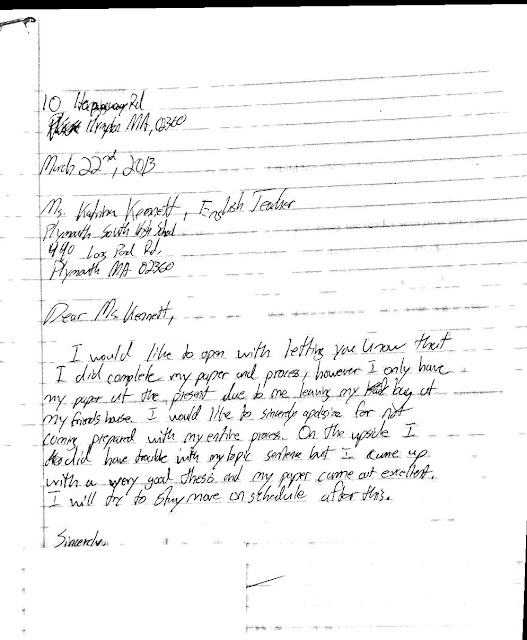 10 Hemingway Rd
Plymouth MA, 02360
March 22nd, 2013
Ms. Katrina Kennett, English Teacher
Plymouth South High School
490 Long Pond Rd,
Plymouth MA 02360
Dear Ms Kennett,
I would like to open with letting you know that
I did complete my paper and process, however I only have
my paper at the present due to me leaving my bag at
my friends house. I would like to sincerely apologize for not
coming prepared with my entire process. On the upside I
did have trouble with my topic sentence but I came up
with a very good thesis and my paper came out excellent.
I will try to stay more on schedule after this.
Sincerely,